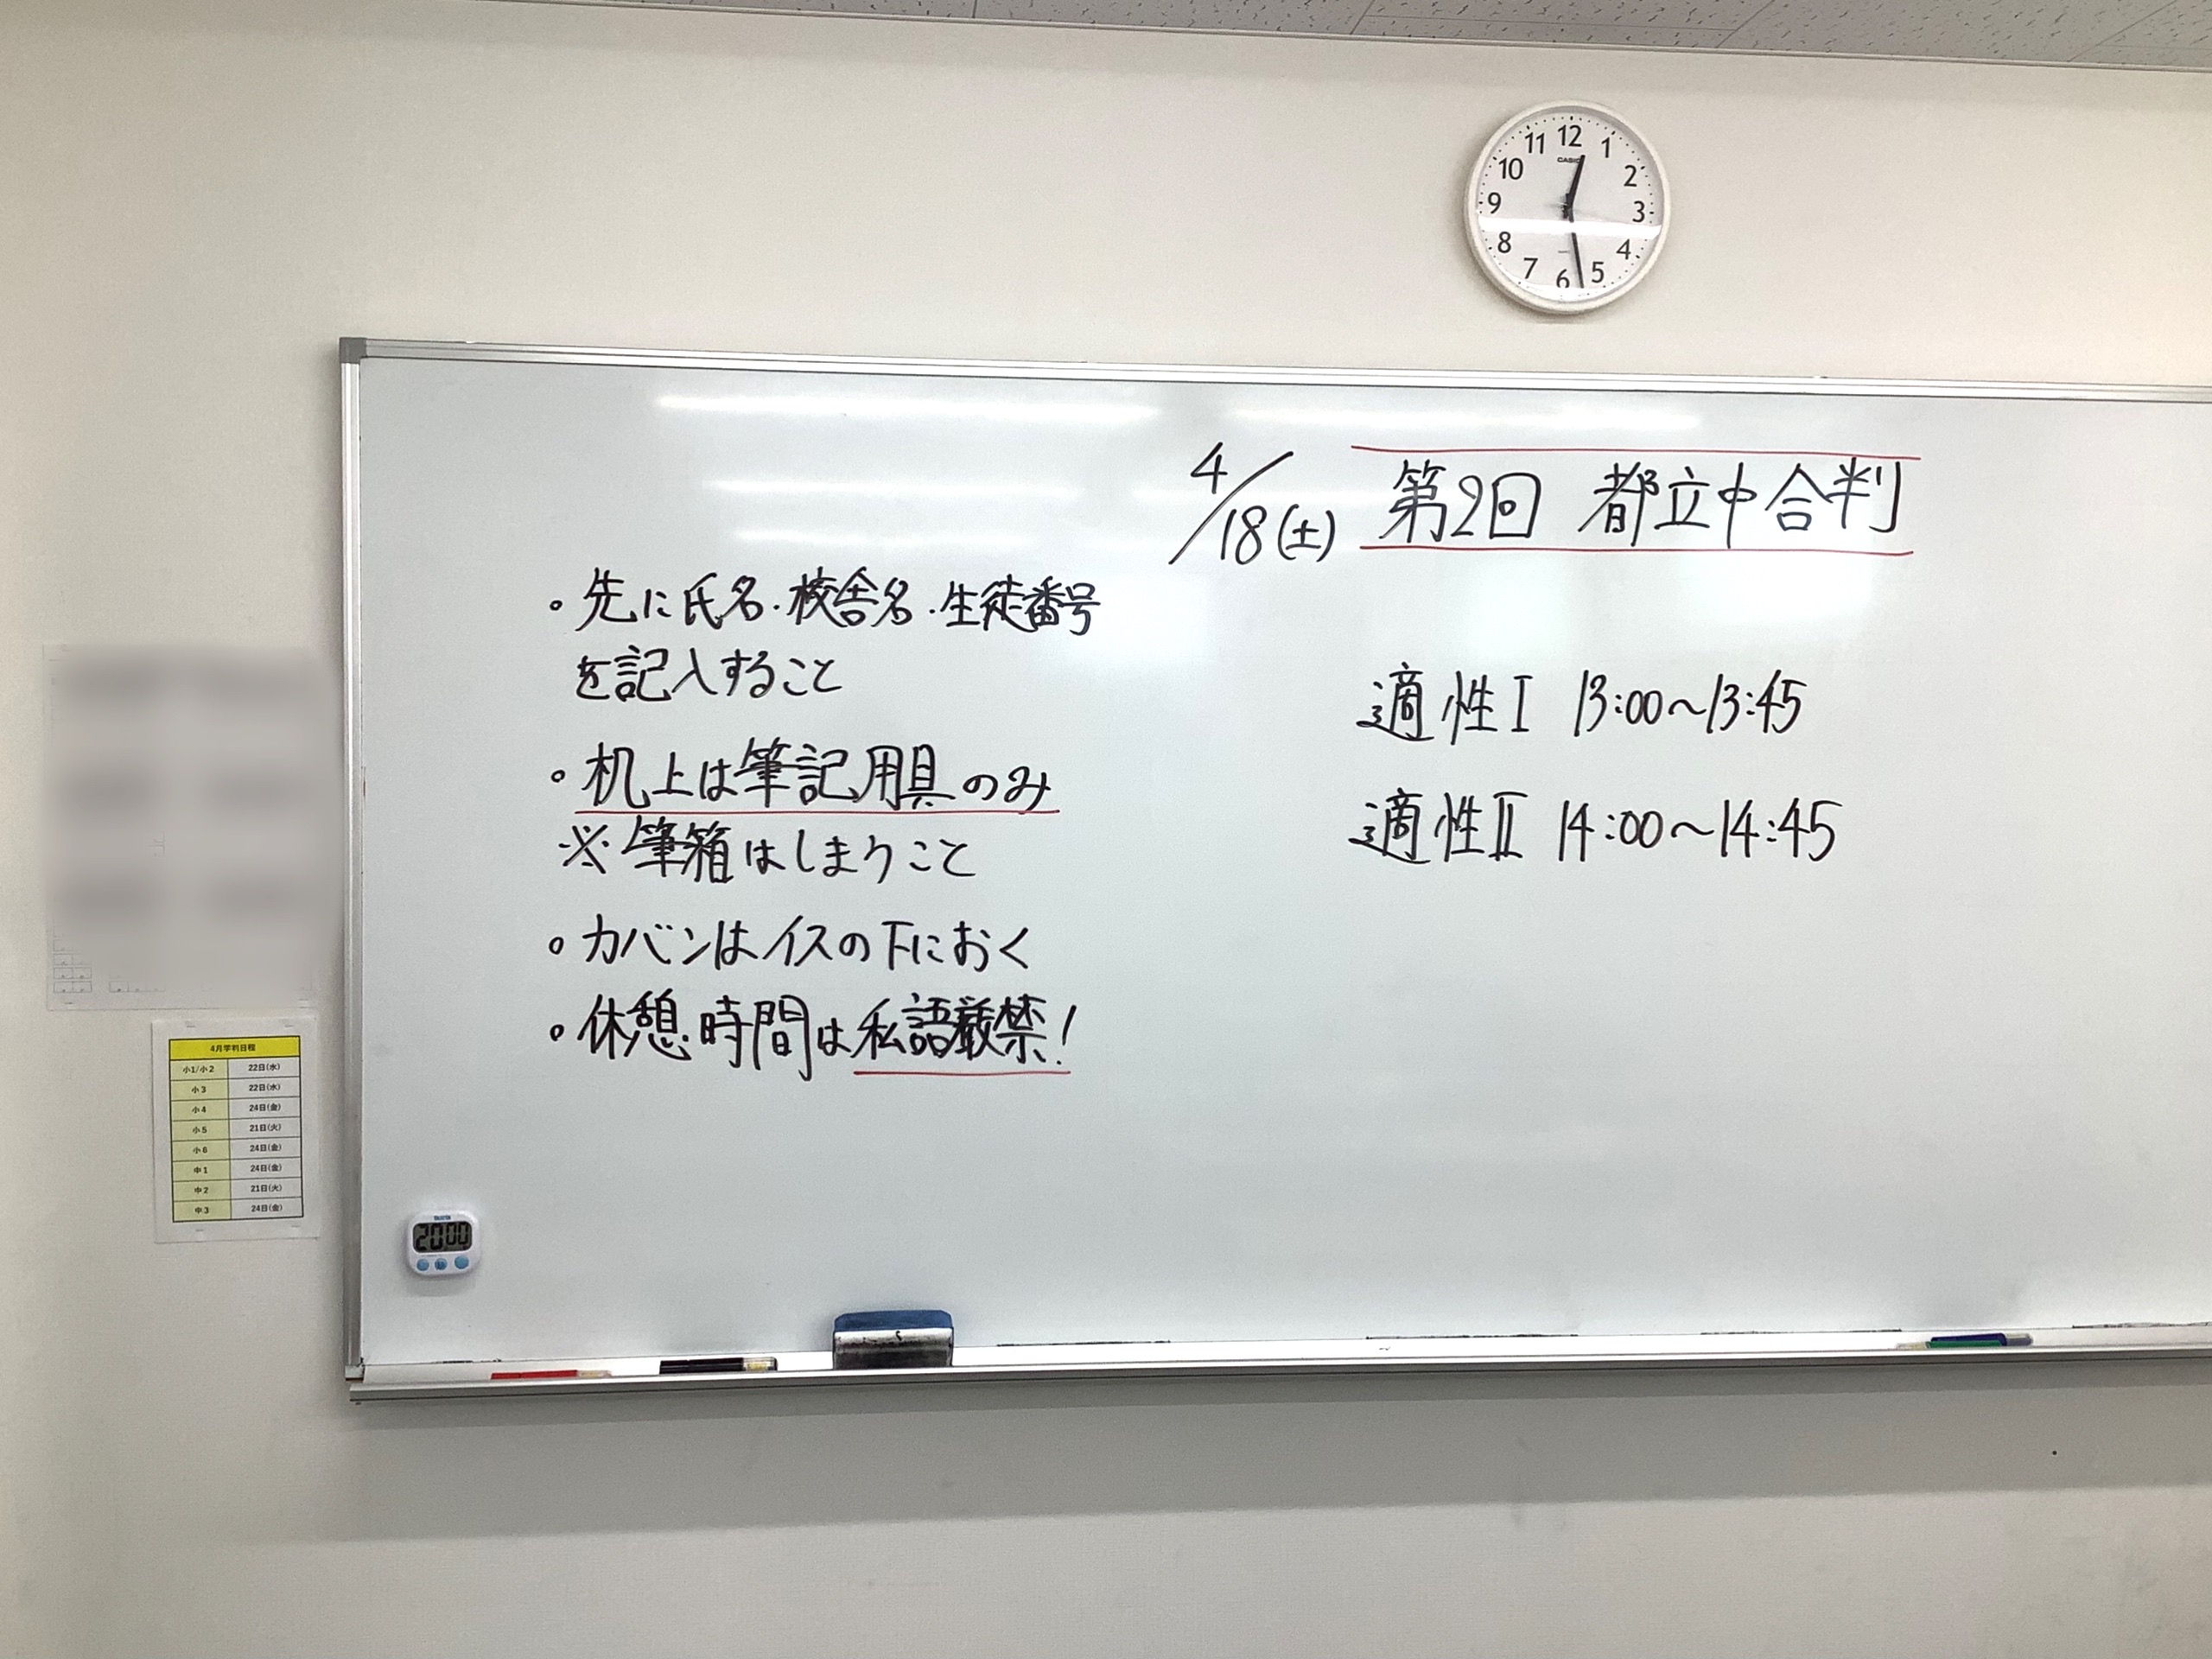 12
11
1
CASIO
10
2
9
3
8
4
7
5
6
4/18(土) 第2回 都立中合判
・先に氏名・校舎名・生徒番号
を記入すること
・机上は筆記用具のみ
※筆箱はしまうこと
・カバンはイスの下におく
・休憩時間は私語厳禁!
適性Ⅰ 13:00～13:45
適性Ⅱ 14:00～14:45
4月学判日程
小1/小2 22日(水)
小3 22日(水)
小4 24日(金)
小5 21日(火)
小6 24日(金)
中1 24日(金)
中2 21日(火)
中3 24日(金)
TANITA
20 00